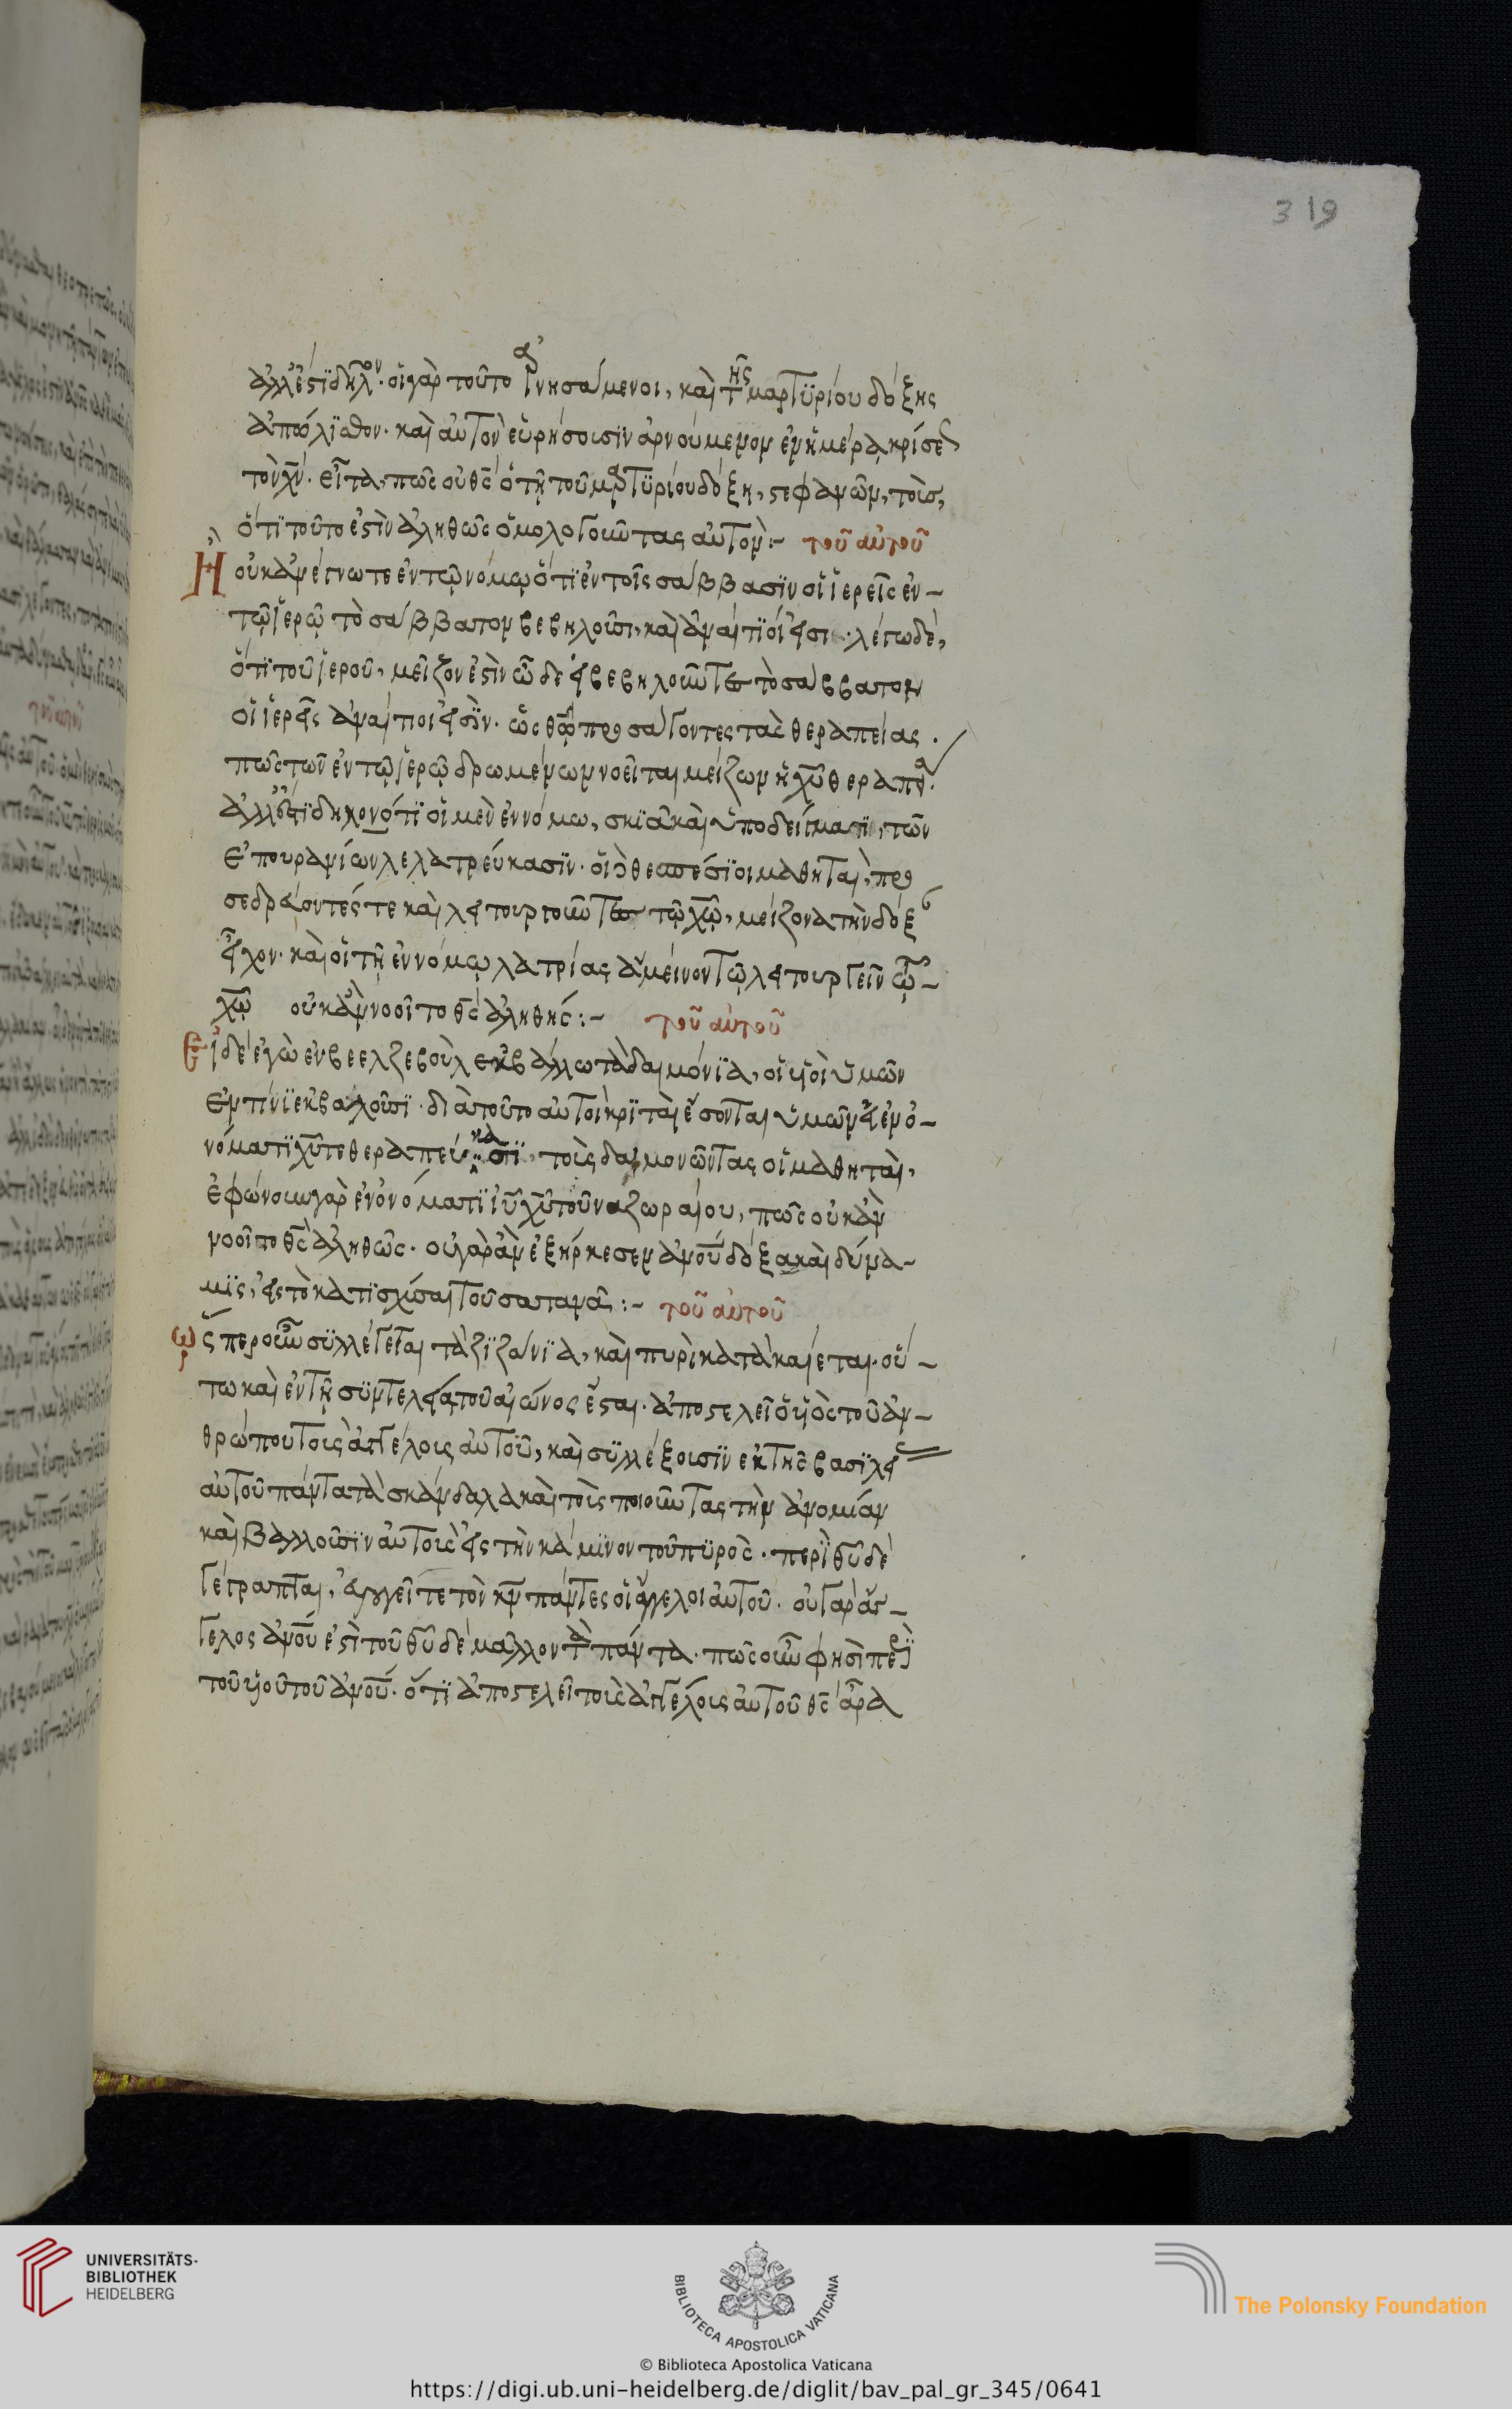 319
ἀλλ' ἔστι δῆλον. οἱ γὰρ τοῦτο ἀρνησάμενοι, καὶ τῆς μαρτυρίου δόξης
ἀπώλισθον. καὶ αὐτὸν εὑρήσουσιν ἀρνούμενον ἐν ἡμέρα κρίσε
τὸν χν. εἶτα, πῶς οὐ θς ὁ τῆ τοῦ μαρτυρίου δόξη, στεφανῶν, τοὺς,
ὅτι τοῦτο ἐστὶν ἀληθῶς ὁμολογοῦντας αὐτόν :- τοῦ αὐτοῦ
Ἢ οὐκ ἀνέγνωτε ἐν τῷ νόμῳ ὅτι ἐν τοῖς σάββασιν οἱ ἱερεῖς ἐν-
τῷ ἱερῷ τὸ σάββατον βεβηλοῦσι, καὶ ἀναίτιοί εἰσι. λέγω δὲ,
ὅτι τοῦ ἱεροῦ, μεῖζον ἐστὶν ὧδε εἰ βεβηλοῦντες τὸ σάββατον
οἱ ἱερεῖς ἀναίτιοι εἰσὶν. ὡς θῶ προσάγοντες τὰς θεραπείας.
πῶς τῶν ἐν τῷ ἱερῷ δρωμένων νοεῖται μείζων ἡ χυ θεραπεία.
ἀλλ' ἔστι δηλονότι οἱ μὲν ἐν νόμω, σκιᾶ καὶ ὑποδείγμασι, τῶν
ἐπουρανίων λελατρεύκασιν. οἱ δὲ θεσπέσιοι μαθηταὶ, προ
σεδρεύοντές τε καὶ λειτουργοῦντες τῷ χῶ, μείζονα τὴν δόξ
εἶχον. καὶ οἱ τῆ ἐν νόμῳ λατρίας ἄμεινον τῷ λειτουργεῖν
χῶ οὐκ ἂν νοοῖτο θς ἀληθής :- τοῦ αὐτοῦ
Εἰ δὲ ἐγὼ ἐν βεελζεβοὺλ ἐκβάλλω τὰ δαιμόνια, οἱ υἱοὶ ὑμῶν
ἐν τίνι ἐκβαλοῦσι. διὰ τοῦτο αὐτοὶ κριταὶ ἔσονται ὑμῶν εἰ ἐν ὀ-
νόματι χυ τεθεραπεύκασι, τοὺς δαιμονῶντας οἱ μαθηταὶ,
ἐφώνουν γὰρ ἐν ὀνόματι ιυ χυ τοῦ ναζωραίου, πῶς οὐκ ἂν
νοοῖτο θς ἀληθῶς. οὐ γὰρ ἂν ἐξήρκεσεν ανου δόξα καὶ δύνα-
μις, εἰς τὸ κατισχύσαι τοῦ σατανᾶ :- τοῦ αὐτοῦ
ὥσπερ οὖν συλλέγεται τὰ ζιζάνια, καὶ πυρὶ κατακαίεται. οὕ-
τω καὶ ἐν τῇ συντελείᾳ τοῦ αἰῶνος ἔσται. ἀποστελεῖ ὁ υἱὸς τοῦ ἀν-
θρώπου τοὺς ἀγγέλους αὐτοῦ, καὶ συλλέξουσιν ἐκ τῆς βασιλεί
αὐτοῦ πάντα τὰ σκάνδαλα καὶ τοὺς ποιοῦντας τὴν ἀνομίαν
καὶ βαλλοῦσιν αὐτοὺς εἰς τὴν κάμινον τοῦ πυρός. περὶ θυ δὲ
γέγραπται, αἰνεῖτε τὸν κν πάντες οἱ ἄγγελοι αὐτοῦ. οὐ γὰρ ἄγ-
γελος ανου ἐστὶ τοῦ θυ δὲ μᾶλλον τὰ πάντα. πῶς οὖν φησὶ περὶ
τοῦ υἱοῦ τοῦ ανου. ὅτι ἀποστελεῖ τοὺς ἀγγέλους αὐτοῦ θς ἄρα
UNIVERSITÄTS-
BIBLIOTHEK
HEIDELBERG
BIBLIOTECA APOSTOLICA VATICANA
The Polonsky Foundation
© Biblioteca Apostolica Vaticana
https://digi.ub.uni-heidelberg.de/diglit/bav_pal_gr_345/0641